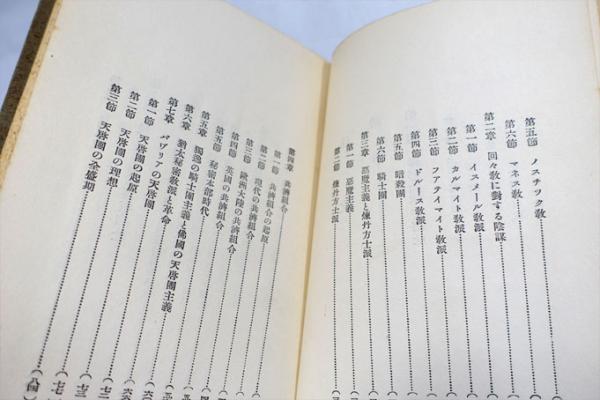 第五節 ノスチツク敎
第六節 マネス敎
第二章 回々敎に對する陰謀
第一節 イスメール敎派
第二節 カルマイト敎派
第三節 フアテイマイト敎派
第四節 ドルース敎派
第五節 暗殺團
第六節 騎士團
第三章 惡魔主義と煉丹方士派
第一節 惡魔主義
第二節 煉丹方士派
第四章 共濟組合
第一節 共濟組合の起原
第二節 現代の共濟組合
第三節 歐洲大陸の共濟組合
第四節 英國の共濟組合
第五節 秘密本部時代
第五章 獨逸の騎士團主義と佛國の天啓團主義
第六章 猶太秘密敎派と革命
第七章 バヴリアの天啓團
第一節 天啓團の起原
第二節 天啓團の理想
第三節 天啓團の全盛期